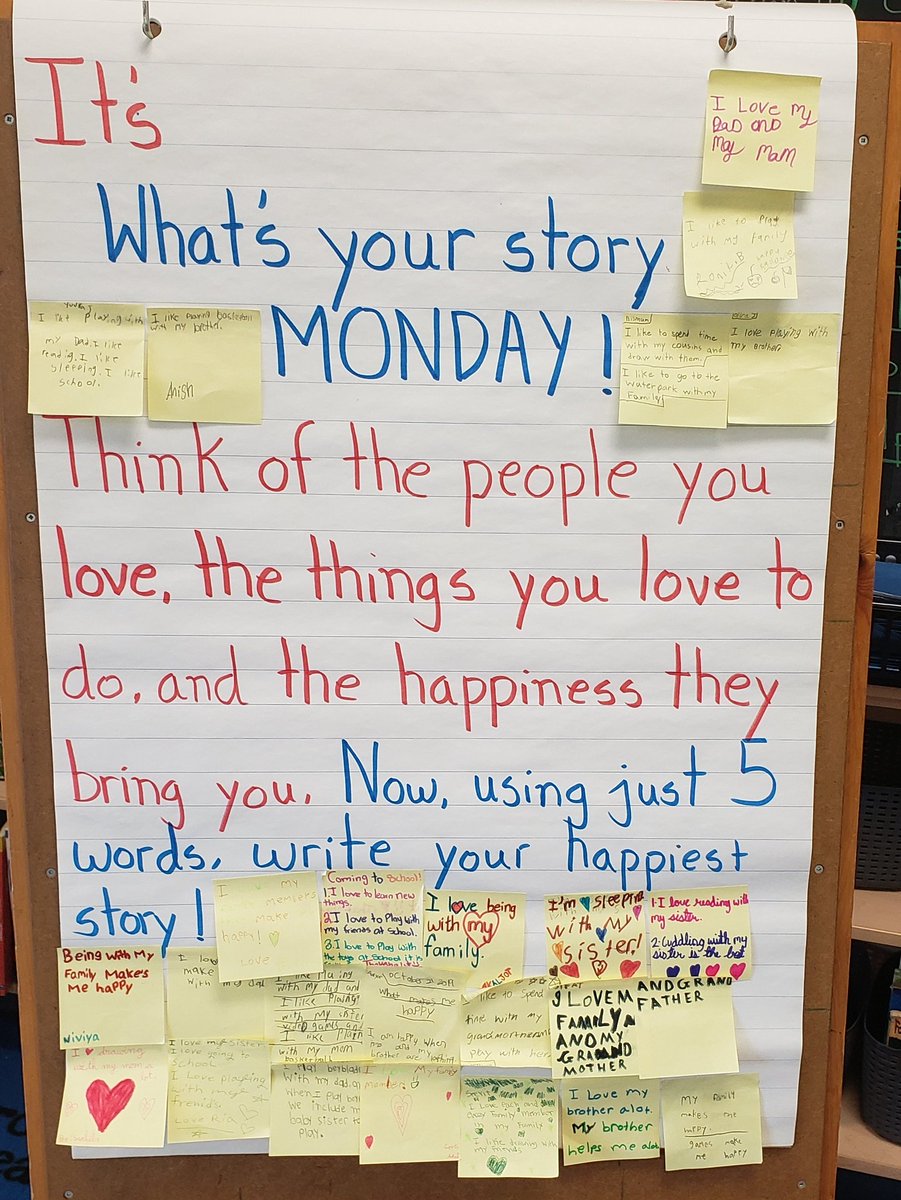 It's
What's your story
MONDAY!
I Love my
Dad and
May Mam
I like to Play
with my family
I like playing with
my Dad. I like
readig. I like
sleeping. I like
school.
I like playing basletball
with my brother.
Anish
I like to spend time
with my cousins and
draw with them.
I like to go to the
waterpark with my
Family
I love playing with
my Brother
Think of the people you
love, the things you love to
do, and the happiness they
bring you. Now, using just 5
words, write your happiest
story!
I my
members
make
happy!
love
Coming to School!
1. I love to learn new
things.
2. I love to Play with
my friends at School.
3. I love to Play with
the toys at School it is
I love being
with my
family.
I'm sleeping
with my
sister!
1. I love reading with
my sister.
2. Cuddling with my
sister is the best
Being with My
Family Makes
Me happy
Viviya
make
with my dad
I like Playing
with my dad and
I like Playing
with my sister
video games and
I like Playin
with my mom
basketball
What makes me
happy
I am happy when
me and my
brother are
like to spend
time with my
grandmother
play with her
I LOVE M
FAMILY
AND MY
GRAAND
MOTHER
AND GRAND
FATHER
I drawing
with my mom a
lot.
I love my sister
I love going to
School
I love playing
with my
freinds.
I play beyblade
with my dad
when I play
we include m
baby sister to
Play.
My family
I love Each and
Evry family member
in my family
I like
my friends
I Love my
brother alot.
My brother
helps me alot
My family
makes me
happy.
games make
me happy